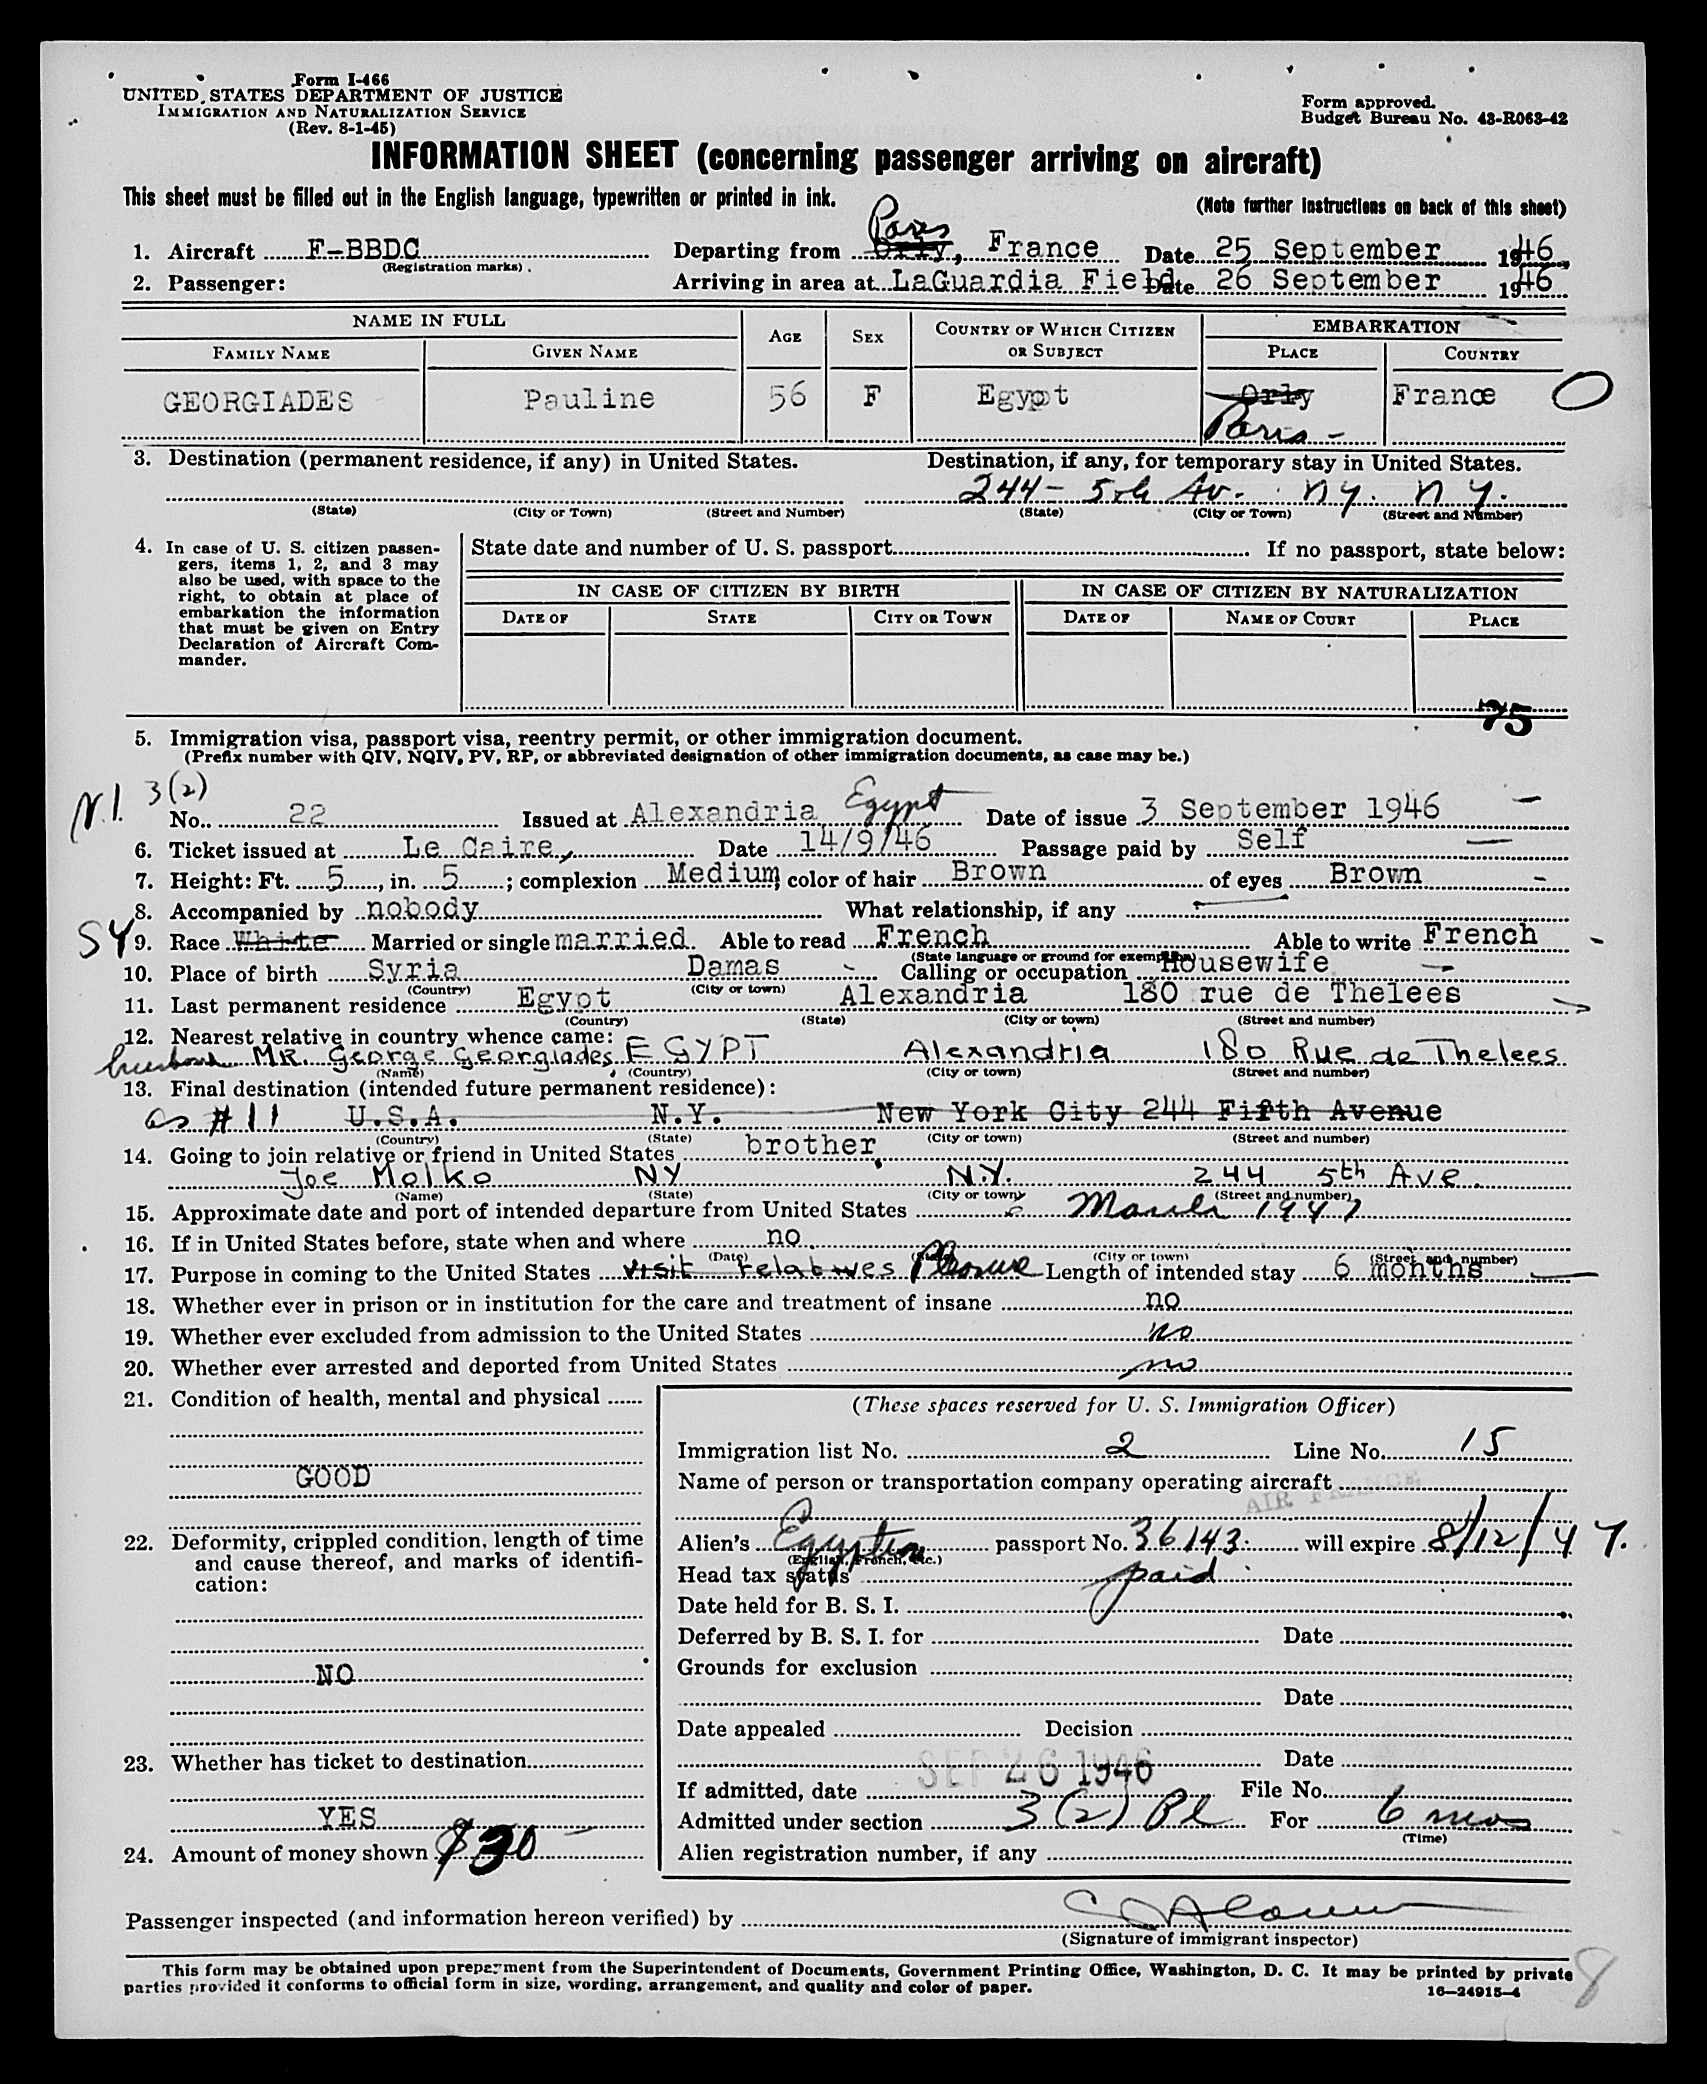 Form I-466
UNITED STATES DEPARTMENT OF JUSTICE
IMMIGRATION AND NATURALIZATION SERVICE
(Rev. 8-1-45)
Form approved.
Budget Bureau No. 43-R063-42
INFORMATION SHEET (concerning passenger arriving on aircraft)
This sheet must be filled out in the English language, typewritten or printed in ink.
(Note further instructions on back of this sheet)
Paris
1. Aircraft F-BBDC Departing from Orly, France Date 25 September 1946
(Registration marks)
2. Passenger: Arriving in area at LaGuardia Field Date 26 September 1946
NAME IN FULL AGE SEX COUNTRY OF WHICH CITIZEN OR SUBJECT EMBARKATION
FAMILY NAME GIVEN NAME PLACE COUNTRY
GEORGIADES Pauline 56 F Egypt Orly France O
Paris -
3. Destination (permanent residence, if any) in United States. Destination, if any, for temporary stay in United States.
244 - 5th Av. N Y. N Y.
(State) (City or Town) (Street and Number) (State) (City or Town) (Street and Number)
4. In case of U. S. citizen passengers, items 1, 2, and 3 may also be used, with space to the right, to obtain at place of embarkation the information that must be given on Entry Declaration of Aircraft Commander.
State date and number of U. S. passport If no passport, state below:
IN CASE OF CITIZEN BY BIRTH IN CASE OF CITIZEN BY NATURALIZATION
DATE OF STATE CITY OR TOWN DATE OF NAME OF COURT PLACE
75
5. Immigration visa, passport visa, reentry permit, or other immigration document.
(Prefix number with QIV, NQIV, PV, RP, or abbreviated designation of other immigration documents, as case may be.)
N.I. 3(2)
No. 22 Issued at Alexandria Egypt Date of issue 3 September 1946
6. Ticket issued at Le Caire, Date 14/9/46 Passage paid by Self
7. Height: Ft. 5, in. 5; complexion Medium, color of hair Brown of eyes Brown
8. Accompanied by nobody What relationship, if any
SY 9. Race White Married or single married. Able to read French Able to write French
(State language or ground for exemption)
10. Place of birth Syria Damas Calling or occupation Housewife
(Country) (City or town)
11. Last permanent residence Egypt Alexandria 180 rue de Thelees
(Country) (State) (City or town) (Street and number)
12. Nearest relative in country whence came:
husband MR. George Georgiades, EGYPT Alexandria 180 Rue de Thelees
(Name) (Country) (City or town) (Street and number)
13. Final destination (intended future permanent residence):
as #11 U.S.A. N.Y. New York City 244 Fifth Avenue
(Country) (State) (City or town) (Street and number)
14. Going to join relative or friend in United States brother,
Joe Molko NY N.Y. 244 5th Ave.
(Name) (State) (City or town) (Street and number)
15. Approximate date and port of intended departure from United States March 1947
16. If in United States before, state when and where no
(Date) (State) (City or town) (Street and number)
17. Purpose in coming to the United States visit relatives Pleasure Length of intended stay 6 months
18. Whether ever in prison or in institution for the care and treatment of insane no
19. Whether ever excluded from admission to the United States no
20. Whether ever arrested and deported from United States no
21. Condition of health, mental and physical
GOOD
22. Deformity, crippled condition, length of time and cause thereof, and marks of identification:
NO
23. Whether has ticket to destination
YES
24. Amount of money shown $30
(These spaces reserved for U. S. Immigration Officer)
Immigration list No. 2 Line No. 15
Name of person or transportation company operating aircraft
AIR FRANCE
Alien's Egyptian passport No. 36143 will expire 8/12/47.
(English, French, etc.)
Head tax status paid
Date held for B. S. I.
Deferred by B. S. I. for Date
Grounds for exclusion
Date
Date appealed Decision
Date
If admitted, date SEP 26 1946 File No.
Admitted under section 3(2) Pl For 6 mos
(Time)
Alien registration number, if any
Passenger inspected (and information hereon verified) by
(Signature of immigrant inspector)
This form may be obtained upon prepayment from the Superintendent of Documents, Government Printing Office, Washington, D. C. It may be printed by private
parties provided it conforms to official form in size, wording, arrangement, and quality and color of paper.
16—24915-4
8